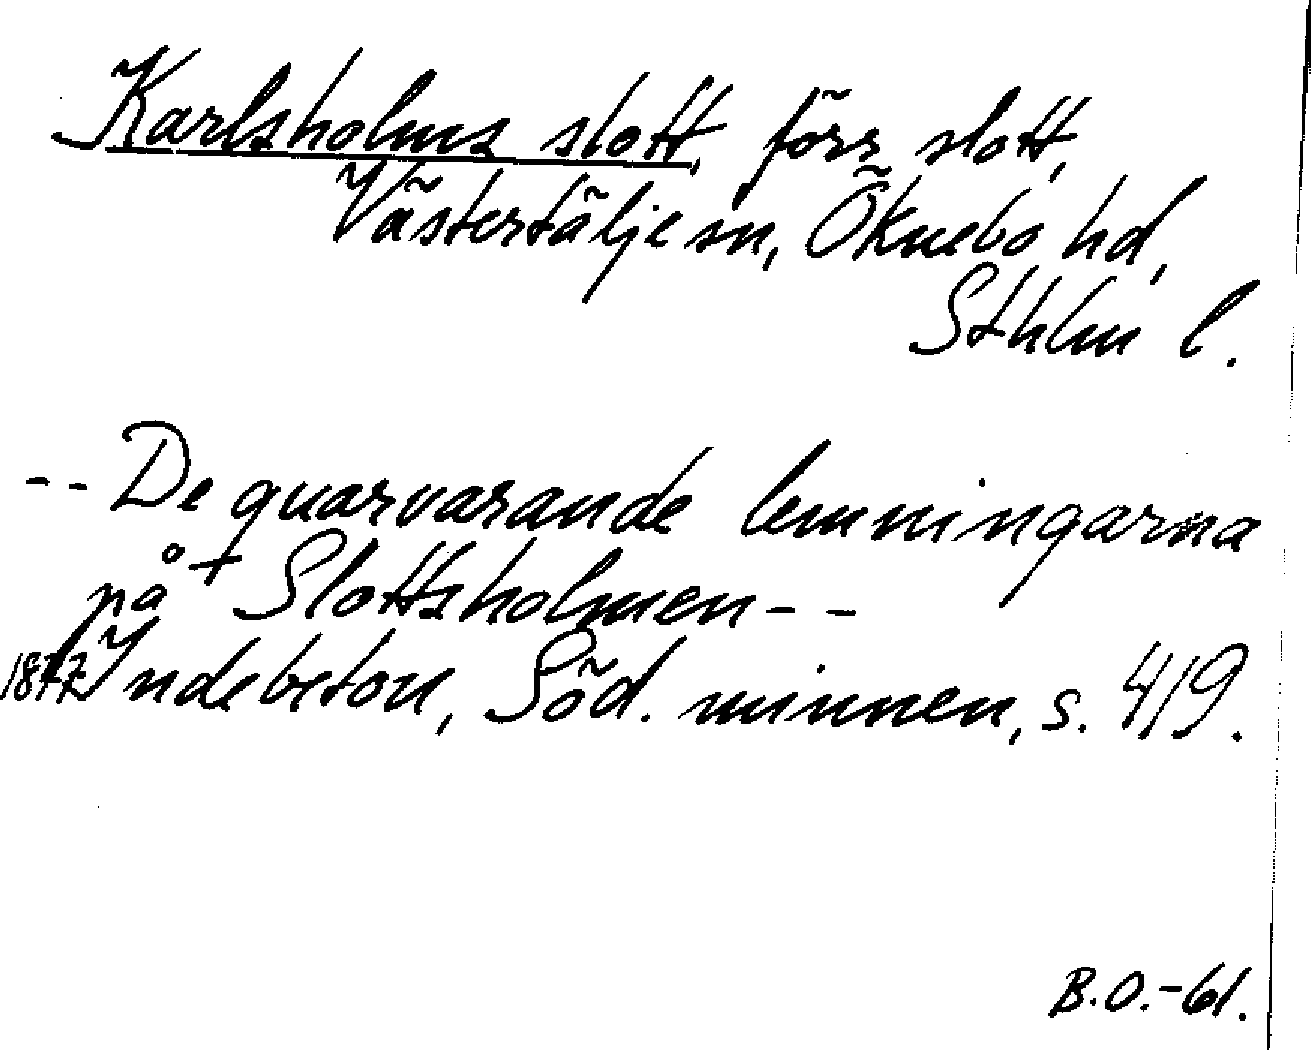 Karlsholms slott, förr slott,
Västertälje sn, Öknebo hd,
Sthlm l.
-- De quarvarande lemningarna
på + Slottsholmen --
1877 Indebetou, Söd. minnen, s. 419.
B.O.-61.